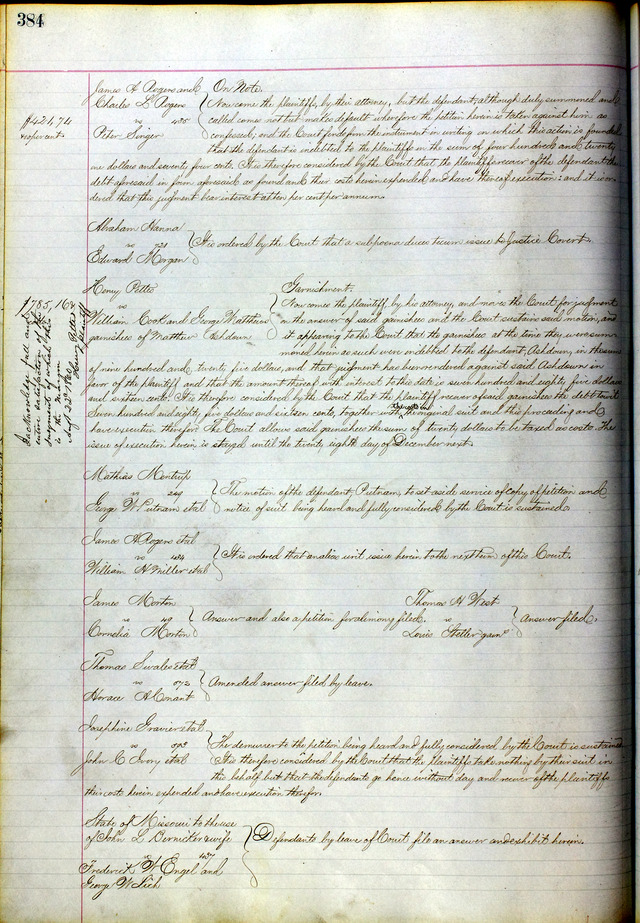 384
James A Rogers and
Charles L Rogers
vs 435
Peter Singer
$421,74
10 per cent
On Note.
Now come the plaintiffs, by their attorney, but the defendant, although duly summoned and
called comes not but makes default wherefore the petition herein is taken against him as
confessed; and the Court finds from the instrument in writing on which this action is founded
that the defendant is indebted to the plaintiffs in the sum of four hundred and twenty
one dollars and seventy four cents. It is therefore considered by the Court that the plaintiffs recover of the defendant the
debt aforesaid in form aforesaid as found and their costs herein expended and have thereof execution: and it is or-
dered that this judgment bear interest at ten per cent per annum.
Abraham Hanna
vs
Edward Morgan
It is ordered by the Court that a subpoena duces tecum issue to Justice Covert.
Henry Pettes
vs
William Cook and George Matthews
garnishees of Matthew Ashdown
Garnishment.
Now comes the plaintiff, by his attorney, and moves the Court for judgment
on the answer of said garnishees and the Court sustains said motion, and
it appearing to the Court that the garnishees at the time they were sum-
moned herein as such were indebted to the defendant, Ashdown, in the sum
of nine hundred and twenty five dollars, and that judgment has been rendered against said Ashdown in
favor of the plaintiff and that the amount thereof with interest to this date is seven hundred and eighty five dollars
and sixteen cents. It is therefore considered by the Court that the plaintiff recover of said garnishees the debt
Seven hundred and eighty five dollars and sixteen cents, together with the costs in the original suit and this proceeding and
have execution therefor. The Court allows said garnishees the sum of twenty dollars to be taxed as costs. The
issue of execution herein is stayed until the twenty eighth day of December next.
$785,16
I acknowledge full and
entire satisfaction of the
judgment of which this
is the
Henry Pettes
Mathias Montrup
vs 249
George W. Putnam et al
The motion of the defendant, Putnam, to set aside service of copy of petition and
notice of suit being heard and fully considered by the Court is sustained.
James A Rogers et al
vs
William H Miller et al
It is ordered that an alias writ issue herein to the next term of this Court.
James Morton
vs 49
Cornelia Morton
Answer and also a petition for alimony filed.
Thomas H West
vs
Louis garn.
Answer filed.
Thomas Swales et al
vs 072
Horace A Conant
Amended answer filed by leave.
Josephine Gravier et al
vs 093
John C Ivory et al
The demurrer to the petition being heard and fully considered by the Court is sustained
It is therefore considered by the Court that the plaintiffs take nothing by their suit in
this behalf but that the defendants go hence without day and recover of the plaintiffs
their costs herein expended and have execution therefor.
State of Missouri to the use
of John L Bernicker & wife
vs
Frederick W Engel and
George W
Defendants by leave of Court file an answer and exhibit herein.